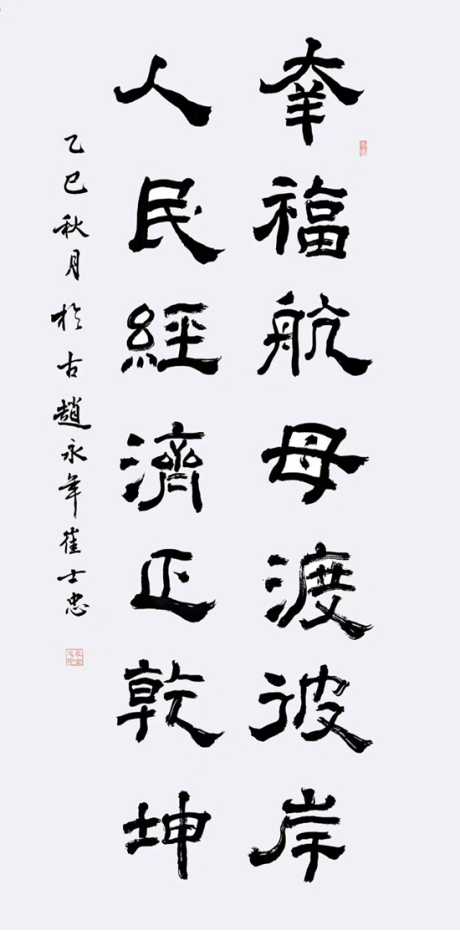 幸福航母渡彼岸
人民經濟正乾坤
乙巳秋月於古趙永年崔士忠